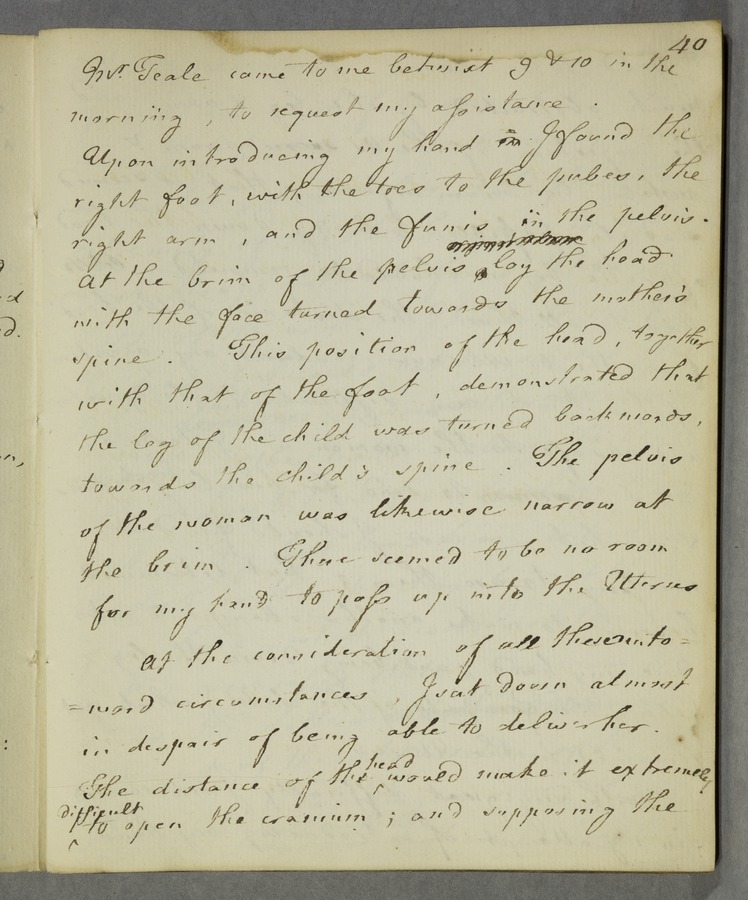 40
Mr. Teale came to me betwixt 9 & 10 in the
morning, to request my assistance.
Upon introducing my hand in I found the
right foot, with the toes to the pubes, the
right arm, and the funis in the pelvis.
At the brim of the pelvis, lay the head
with the face turned towards the mother's
spine. This position of the head, together
with that of the foot, demonstrated that
the leg of the child was turned backwards,
towards the child's spine. The pelvis
of the woman was likewise narrow at
the brim. There seemed to be no room
for my hand to pass up into the Uterus
At the consideration of all these unto=
=ward circumstances, I sat down almost
in despair of being able to deliver her.
The distance of the head would make it extremely
difficult to open the cranium; and supposing the